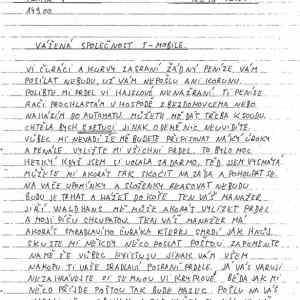 149 00
VÁŽENÁ SPOLEČNOST T-MOBILE.
VI ČURÁCI A KURVY ZASRANÍ ŽÁDNÝ PENÍZE VÁM
POSÍLAT NEBUDU, UŽ VÁM NEPOŠLU ANI KORUNU.
POLIBTE MI PRDEL VI HAJZLOVÉ NENAŽRANÍ. TI PENÍZE
RAČI PROCHLASTÁM V HOSPODĚ Z BEZDOMOVCEMA NEBO
NAHÁZÍM DO AUTOMATU. MŮŽETE MĚ DÁT TŘEBA K SOUDU.
CHTĚLA BYCH EXETUCI JINAK ODEMĚ NIC NEUVIDÍTE.
VŮBEC MI NEVADÍ ŽE MĚ BUDETE PŘIPISOVAT ŇÁKÝ ÚROKY
A PENÁLE. VYLIŽTE MI VŠICHNI PRDEL. TO BYLO MOC
HEZKÝ KDYŽ JSEM SI VOLALA ZADARMO, TEĎ JSEM VYSMÁTÁ
MŮŽETE MI AKORÁT TAK SKOČIT NA ZÁDA A POHOUPAT SE.
NA VAŠE UPOMÍNKY A SLOŽENKY REAGOVAT NEBUDU
BUDU JE TRHAT A HÁZET DO KOŠE TEN VÁŠ MANAŽER
JIŘÍ WALDHANS MĚ MŮŽE AKORÁT VYLÍZET PRDEL
A MOJI PÍČU CHLUPATOU. TEN VÁŠ MANAŽER MÁ
AKORÁT SMRADLAVÝHO ČURÁKA KTEREJ SMRDÍ JAK HNŮJ.
ZKUSTE MI NĚKDY NĚCO POSLAT POŠTOU, ZAPOMEŇTE
NA MĚ ŽE VŮBEC EXISTUJU JINAK VÁM VŠEM
NAKOPU TI VAŠE SRADLAVÍ POSRANÍ PRDELE. JÁ VÁS VARUJI
NEZAHRÁVEJTE SI SE MNOU VI KRYPLOVÉ.
NĚCO PŘÍJDE POŠTOU TAK BUDE MAZEC POŠLU NA VÁS